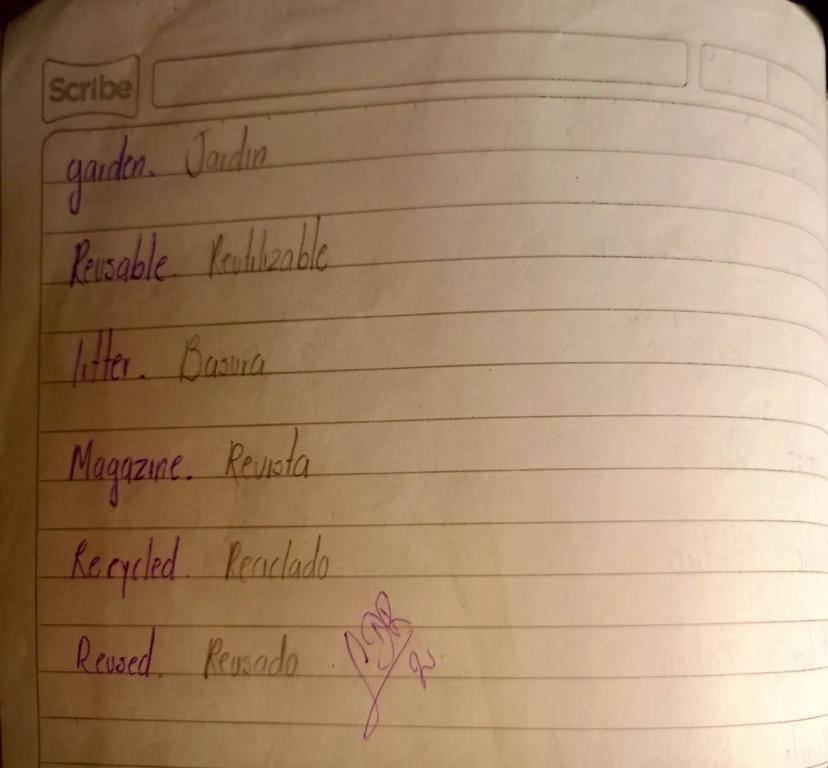 Scribe
garden. Jardin
Reusable. Reutilizable
litter. Basura
Magazine. Revista
Recycled. Reciclado
Reused. Reusado